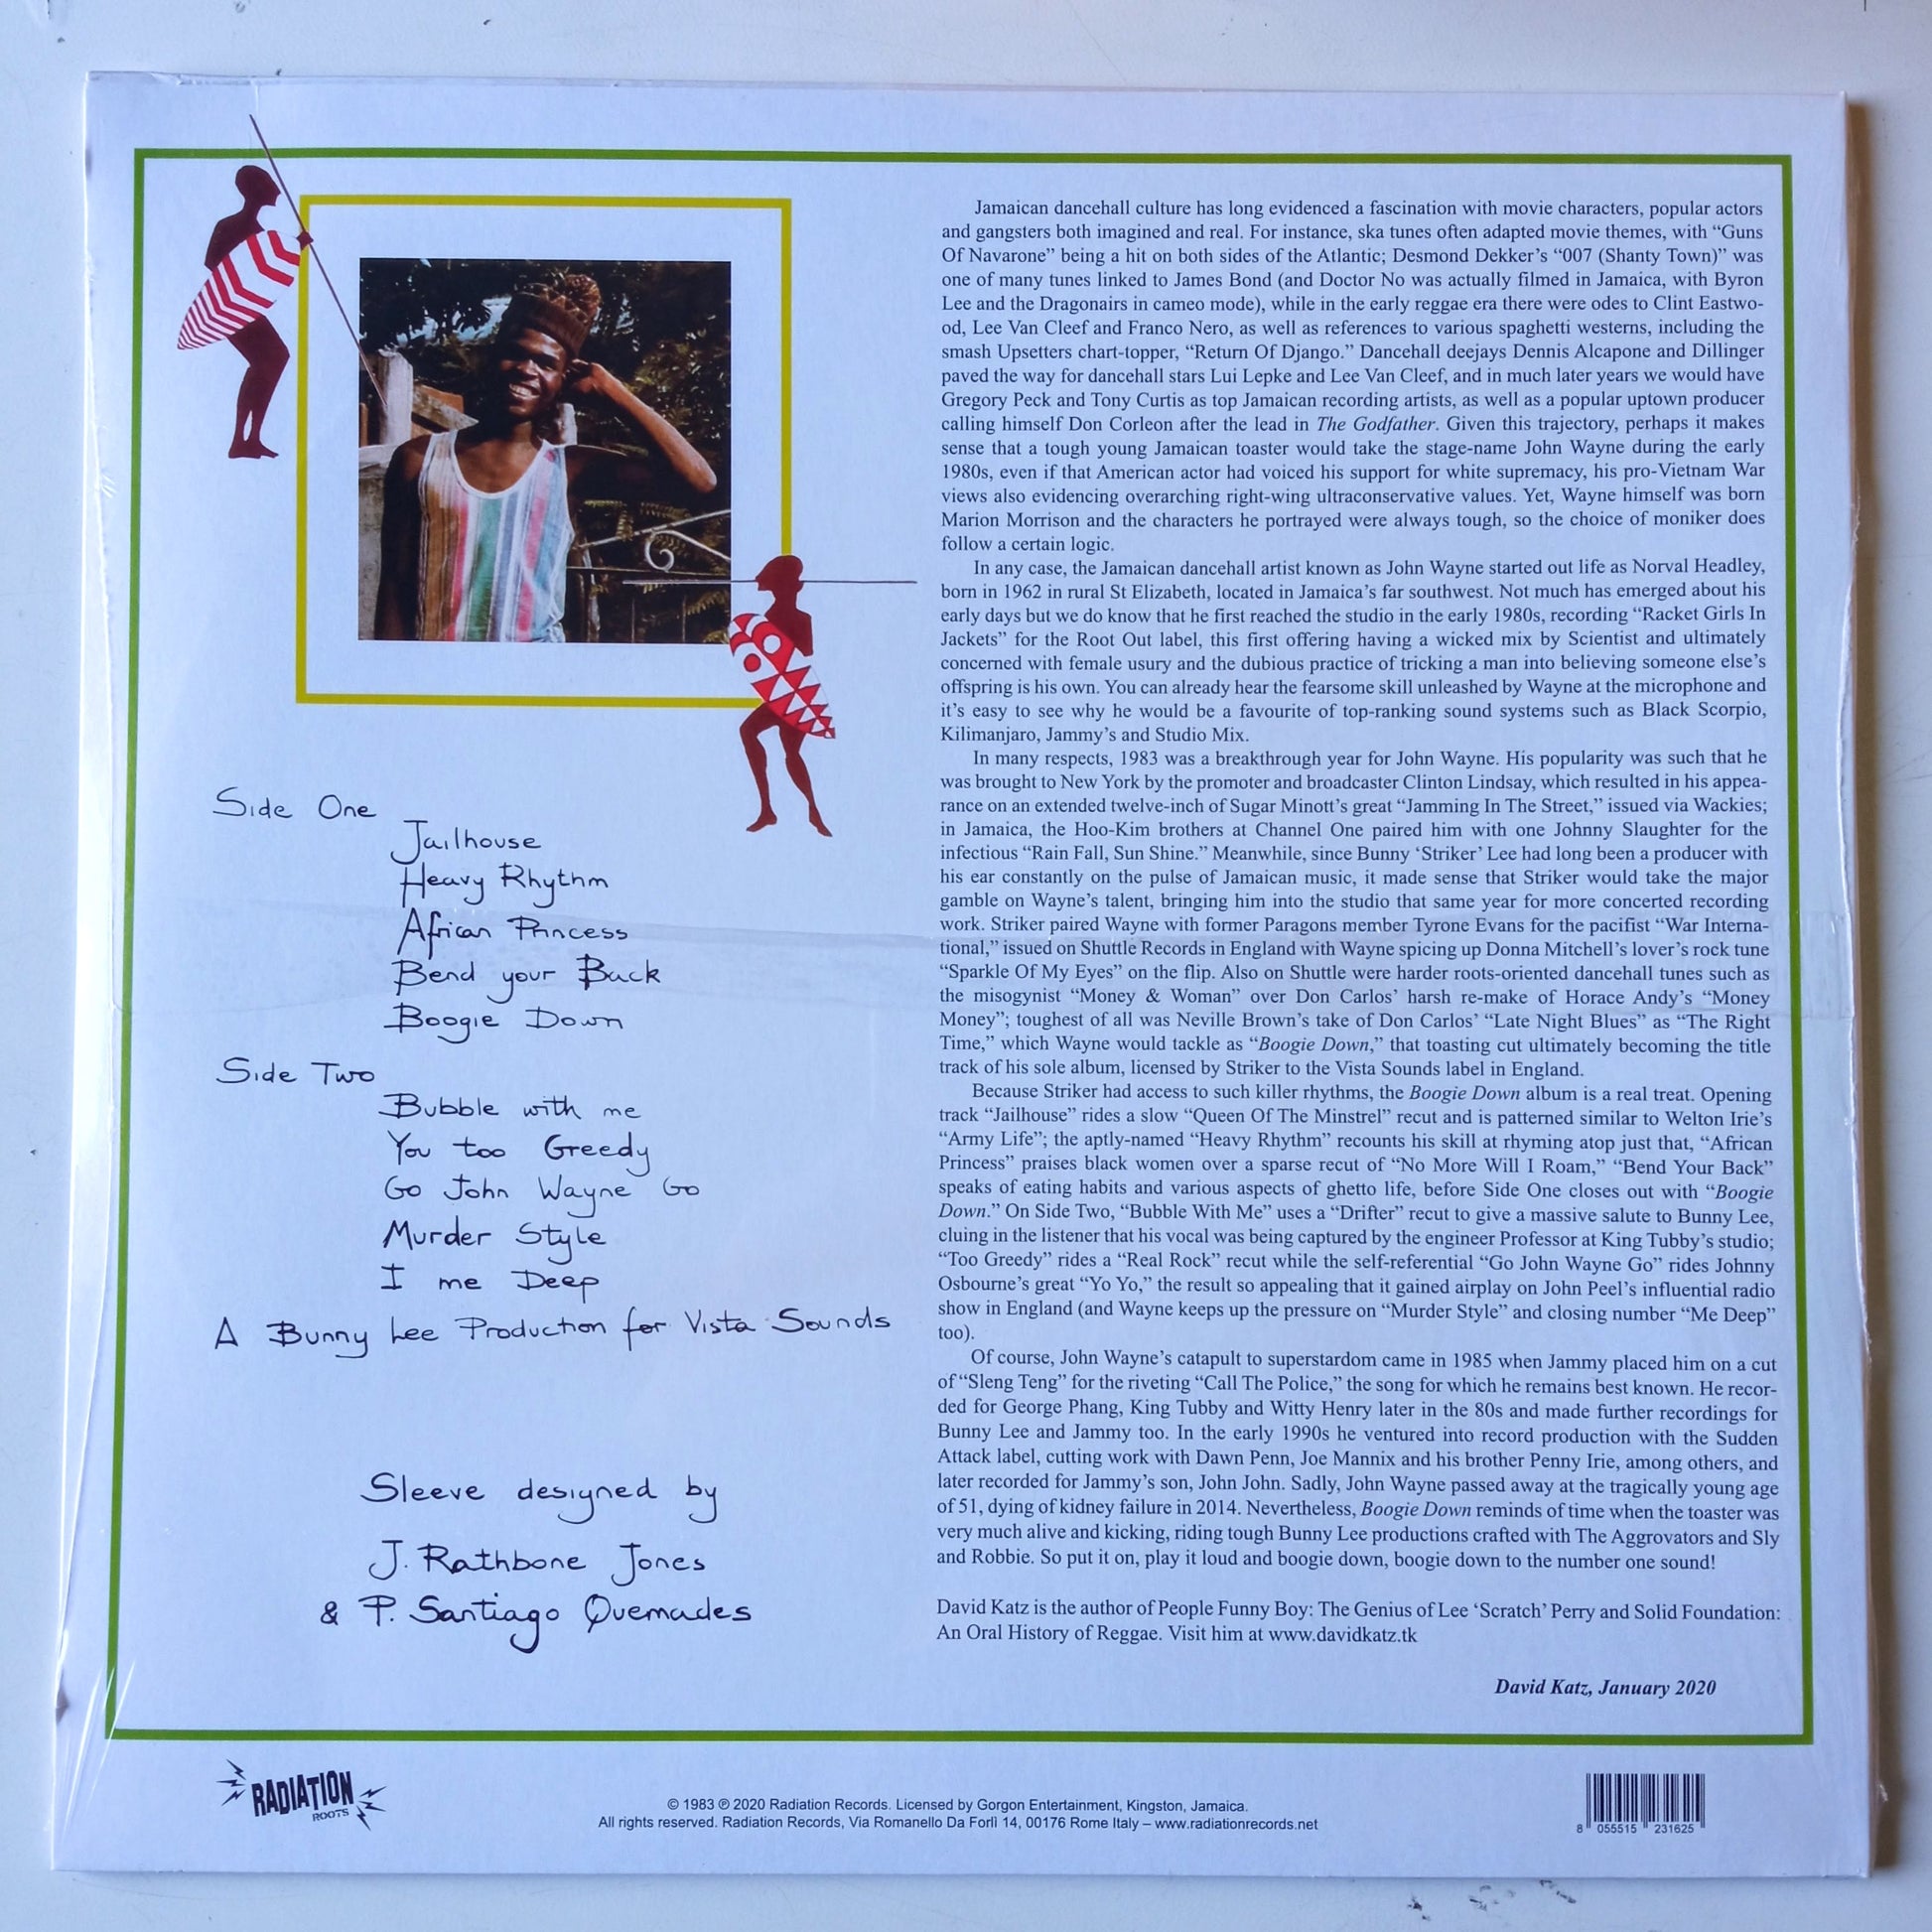 Side One
Jailhouse
Heavy Rhythm
African Princess
Bend your Back
Boogie Down
Side Two
Bubble with me
You too Greedy
Go John Wayne Go
Murder Style
I me Deep
A Bunny Lee Production for Vista Sounds
Sleeve designed by
J. Rathbone Jones
& P. Santiago Quemades
Jamaican dancehall culture has long evidenced a fascination with movie characters, popular actors
and gangsters both imagined and real. For instance, ska tunes often adapted movie themes, with “Guns
Of Navarone” being a hit on both sides of the Atlantic; Desmond Dekker’s “007 (Shanty Town)” was
one of many tunes linked to James Bond (and Doctor No was actually filmed in Jamaica, with Byron
Lee and the Dragonairs in cameo mode), while in the early reggae era there were odes to Clint Eastwo-
od, Lee Van Cleef and Franco Nero, as well as references to various spaghetti westerns, including the
smash Upsetters chart-topper, “Return Of Django.” Dancehall deejays Dennis Alcapone and Dillinger
paved the way for dancehall stars Lui Lepke and Lee Van Cleef, and in much later years we would have
Gregory Peck and Tony Curtis as top Jamaican recording artists, as well as a popular uptown producer
calling himself Don Corleon after the lead in The Godfather. Given this trajectory, perhaps it makes
sense that a tough young Jamaican toaster would take the stage-name John Wayne during the early
1980s, even if that American actor had voiced his support for white supremacy, his pro-Vietnam War
views also evidencing overarching right-wing ultraconservative values. Yet, Wayne himself was born
Marion Morrison and the characters he portrayed were always tough, so the choice of moniker does
follow a certain logic.
In any case, the Jamaican dancehall artist known as John Wayne started out life as Norval Headley,
born in 1962 in rural St Elizabeth, located in Jamaica’s far southwest. Not much has emerged about his
early days but we do know that he first reached the studio in the early 1980s, recording “Racket Girls In
Jackets” for the Root Out label, this first offering having a wicked mix by Scientist and ultimately
concerned with female usury and the dubious practice of tricking a man into believing someone else’s
offspring is his own. You can already hear the fearsome skill unleashed by Wayne at the microphone and
it’s easy to see why he would be a favourite of top-ranking sound systems such as Black Scorpio,
Kilimanjaro, Jammy’s and Studio Mix.
In many respects, 1983 was a breakthrough year for John Wayne. His popularity was such that he
was brought to New York by the promoter and broadcaster Clinton Lindsay, which resulted in his appea-
rance on an extended twelve-inch of Sugar Minott’s great “Jamming In The Street,” issued via Wackies;
in Jamaica, the Hoo-Kim brothers at Channel One paired him with one Johnny Slaughter for the
infectious “Rain Fall, Sun Shine.” Meanwhile, since Bunny ‘Striker’ Lee had long been a producer with
his ear constantly on the pulse of Jamaican music, it made sense that Striker would take the major
gamble on Wayne’s talent, bringing him into the studio that same year for more concerted recording
work. Striker paired Wayne with former Paragons member Tyrone Evans for the pacifist “War Interna-
tional,” issued on Shuttle Records in England with Wayne spicing up Donna Mitchell’s lover’s rock tune
“Sparkle Of My Eyes” on the flip. Also on Shuttle were harder roots-oriented dancehall tunes such as
the misogynist “Money & Woman” over Don Carlos’ harsh re-make of Horace Andy’s “Money
Money”; toughest of all was Neville Brown’s take of Don Carlos’ “Late Night Blues” as “The Right
Time,” which Wayne would tackle as “Boogie Down,” that toasting cut ultimately becoming the title
track of his sole album, licensed by Striker to the Vista Sounds label in England.
Because Striker had access to such killer rhythms, the Boogie Down album is a real treat. Opening
track “Jailhouse” rides a slow “Queen Of The Minstrel” recut and is patterned similar to Welton Irie’s
“Army Life”; the aptly-named “Heavy Rhythm” recounts his skill at rhyming atop just that, “African
Princess” praises black women over a sparse recut of “No More Will I Roam,” “Bend Your Back”
speaks of eating habits and various aspects of ghetto life, before Side One closes out with “Boogie
Down.” On Side Two, “Bubble With Me” uses a “Drifter” recut to give a massive salute to Bunny Lee,
cluing in the listener that his vocal was being captured by the engineer Professor at King Tubby’s studio;
“Too Greedy” rides a “Real Rock” recut while the self-referential “Go John Wayne Go” rides Johnny
Osbourne’s great “Yo Yo,” the result so appealing that it gained airplay on John Peel’s influential radio
show in England (and Wayne keeps up the pressure on “Murder Style” and closing number “Me Deep”
too).
Of course, John Wayne’s catapult to superstardom came in 1985 when Jammy placed him on a cut
of “Sleng Teng” for the riveting “Call The Police,” the song for which he remains best known. He recor-
ded for George Phang, King Tubby and Witty Henry later in the 80s and made further recordings for
Bunny Lee and Jammy too. In the early 1990s he ventured into record production with the Sudden
Attack label, cutting work with Dawn Penn, Joe Mannix and his brother Penny Irie, among others, and
later recorded for Jammy’s son, John John. Sadly, John Wayne passed away at the tragically young age
of 51, dying of kidney failure in 2014. Nevertheless, Boogie Down reminds of time when the toaster was
very much alive and kicking, riding tough Bunny Lee productions crafted with The Aggrovators and Sly
and Robbie. So put it on, play it loud and boogie down, boogie down to the number one sound!
David Katz is the author of People Funny Boy: The Genius of Lee ‘Scratch’ Perry and Solid Foundation:
An Oral History of Reggae. Visit him at www.davidkatz.tk
David Katz, January 2020
RADIATION
ROOTS
© 1983 ℗ 2020 Radiation Records. Licensed by Gorgon Entertainment, Kingston, Jamaica.
All rights reserved. Radiation Records, Via Romanello Da Forlì 14, 00176 Rome Italy – www.radiationrecords.net
8 055515 231625